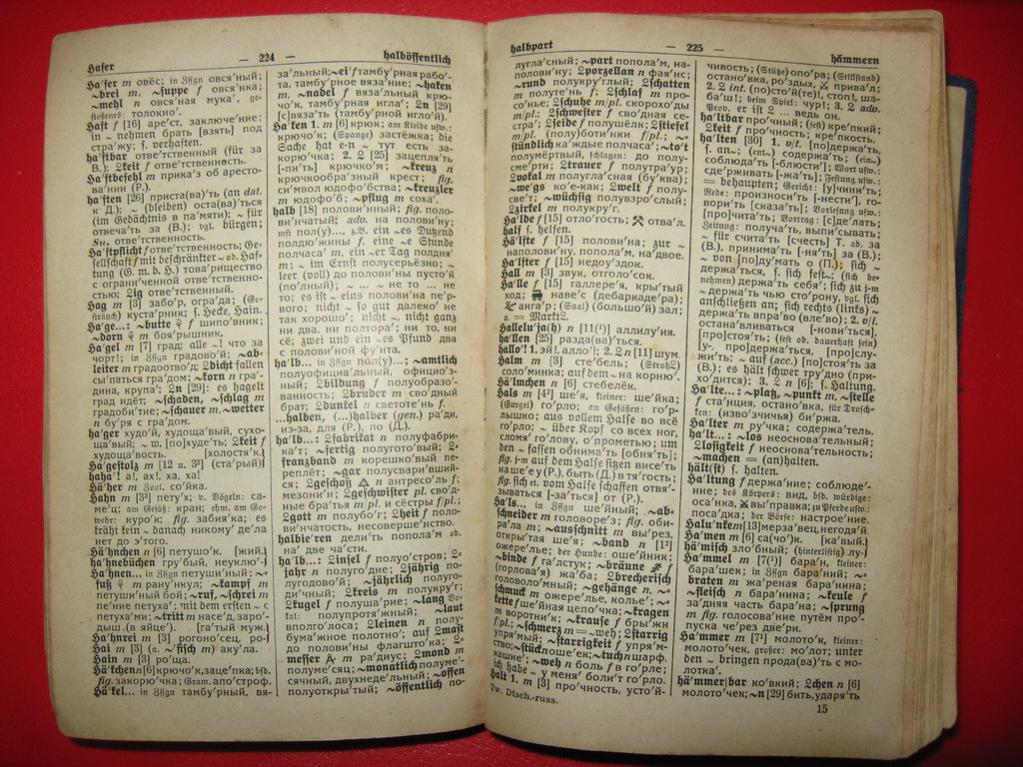 Hafer
— 224 —
halböffentlich
Ha'fer m овёс; in Zssgn овся'ный;
~brei m, ~suppe f овся'нка;
~mehl n овся'ная мука', ge-
stoßenes: толокно'.
Haft f [16] аре'ст, заключе'ние;
in ~ nehmen брать [взять] под
стра'жу; s. verhaften.
ha'ftbar отве'тственный (für за
В.); 2keit f отве'тственность.
Ha'ftbefehl m прика'з об аресто-
ва'нии (Р.).
ha'ften [26] приста(ва')ть (an dat.
к Д.); ~ (bleiben) оста(ва')ться
(im Gedächtnis в па'мяти); ~ für
отвеча'ть за (В.); vgl. bürgen;
Su. отве'тственность.
Ha'ftpflicht f отве'тственность; Ge-
sellschaft f mit beschränkter ~ od. Haf-
tung (G. m. b. H.) това'рищество
с ограни'ченной отве'тственно-
стью; 2ig отве'тственный.
Hag m [3] забо'р, огра'да; (Ge-
sträuch) куста'рник; s. Hecke, Hain.
Ha'ge...: ~butte f шипо'вник;
~dorn m боя'рышник.
Ha'gel m [7] град; alle ~! что за
чорт!; in Zssgn градово'й; ~ab-
leiter m градоотво'д; 2dicht fallen
сы'паться гра'дом; ~korn n гра'-
дина, крупа'; 2n [29]: es hagelt
град идёт; ~schaden, ~schlag m
градоби'тие; ~schauer m, ~wetter
n бу'ря с гра'дом.
ha'ger худо'й, худоща'вый, сухо-
ща'вый; ~ w. [по]худе'ть; 2keit f
худоща'вость. [холостя'к.]
Ha'gestolz m [12 u. 3²] (ста'рый)
haha'! а!, ах!, ха, ха!
Hä'her m Zool. со'йка.
Hahn m [3³] пету'х; v. Vögeln: са-
ме'ц; am Gefäß: кран; ehm. am Ge-
wehr: куро'к; fig. забия'ка; es
kräht kein ~ danach никому' де'ла
нет до э'того.
Hä'hnchen n [6] петушо'к. [жий.]
ha'hnebüchen гру'бый, неуклю'-
Ha'hnen... in Zssgn петуши'ный; ~-
fuß m рану'нкул; ~kampf m
петуши'ный бой; ~ruf, ~schrei m
пе'ние петуха'; mit dem ersten ~ с
петуха'ми; ~tritt m насе'д, заро'-
дыш (в яйце'). [га'тый муж.]
Ha'hnrei m [3] рогоно'сец, ро-
Hai m [3] (a. ~fisch m) аку'ла.
Hain m [3] ро'ща.
Hä'kchen n [6] крючо'к, заце'пка; bsd.
fig. закорю'чка; Gram. апо'строф.
Hä'kel... in Zssgn тамбу'рный, вя-
за'льный; ~ei' f тамбу'рная рабо'-
та, тамбу'рное вяза'ние; ~haken
m, ~nadel f вяза'льный крю-
чо'к, тамбу'рная игла'; 2n [29]
[с]вяза'ть (тамбу'рной игло'й).
Ha'ken 1. m [6] крюк; am Kleide usw.:
крючо'к; (Spange) застёжка; die
Sache hat e-n ~ тут есть за-
корю'чка; 2. 2 [25] зацепля'ть
[-пи'ть] крючко'м; ~kreuz n
крючкообра'зный крест; fig.
си'мвол юдофо'бства; ~kreuzler
m юдофо'б; ~pflug m соха'.
halb [18] полови'нный; fig. поло-
ви'нчатый; adv. на полови'ну;
mst пол(у)..., z.B. ein ~es Dutzend
полдю'жины f, eine ~e Stunde
полчаса' m, ein ~er Tag полдня'
m; ~ im Ernst полусерьёзно; ~
leer (voll) до полови'ны пусто'й
(по'лный); ~ ... ~ не то ... не
то; es ist ~ eins полови'на пе'р-
вого; nicht ~ so gut далеко' не
так хорошо'; nicht ~, nicht ganz
ни два, ни полтора'; ни то, ни
сё; zwei und ein ~es Pfund два
с полови'ной фу'нта.
ha'lb... in Zssgn пол(у)...; ~amtlich
полуофициа'льный, официо'з-
ный; 2bildung f полуобразо'-
ванность; 2bruder m сво'дный
брат; 2dunkel n светоте'нь f.
...halben, (...)halber (gen.) ра'ди,
из-за, для (Р.), по (Д.).
ha'lb...: 2fabrikat n полуфабри-
ка'т; ~fertig полугото'вый; 2-
franzband m корешко'вый пе-
реплёт; ~gar полусвари'вший-
ся; 2geschoß n антресо'ль f;
мезони'н; 2geschwister pl. сво'д-
ные бра'тья m/pl. и сёстры f/pl.;
2gott m полубо'г; 2heit f поло-
ви'нчатость, несоверше'нство.
halbie'ren дели'ть попола'м od.
на' две ча'сти.
ha'lb...: 2insel f полуо'стров; 2-
jahr n полуго'дие; 2jährig по-
лугодово'й; ~jährlich полуго-
ди'чный; 2kreis m полукру'г;
2kugel f полуша'рие; ~lang Vo-
kal: полупротя'жный; ~laut
вполго'лоса; 2leinen n полу-
бума'жное полотно'; auf 2mast
до полови'ны флагшто'ка; 2-
messer m ра'диус; 2mond m
полуме'сяц; ~monatlich полуме'-
сячный, двухнеде'льный; ~offen
полуоткры'тый; ~öffentlich по-
halbpart
— 225 —
hämmern
лугла'сный; ~part попола'м, на-
полови'ну; 2porzellan n фая'нс;
~rund полукру'глый; 2schatten
m полуте'нь f; 2schlaf m про-
со'нье; 2schuhe m/pl. скорохо'ды
m/pl.; 2schwester f сво'дная се-
стра'; 2seide f полушёлк; 2stiefel
m/pl. (полу)боти'нки f/pl.; ~-
stündlich ка'ждые полчаса'; ~to't
полумёртвый, schlagen: до полу-
сме'рти; 2trauer f полутра'ур;
2vokal m полугла'сная (бу'ква);
~we'gs ко'е-как; 2welt f полу-
све'т; ~wüchsig полувзро'слый;
2zirkel m полукру'г.
Ha'lde f [15] отло'гость; отва'л.
half s. helfen.
Hä'lfte f [15] полови'на; zur ~
наполови'ну, попола'м, на'двое.
Ha'lfter f [15] недоу'здок.
Hall m [3] звук, отголо'сок.
Ha'lle f [15] галлере'я, кры'тый
ход; наве'с (дебаркаде'ра);
анга'р; (Saal) (большо'й) зал;
a. = Markt2.
Hallelu'ja(h) n [11(¹)] аллилу'ия.
ha'llen [25] разда(ва')ться.
hallo'! 1. эй!, алло'!; 2. 2 n [11] шум.
Halm m [3] сте'бель; (Stroh2)
соло'минка; auf dem ~ на корню'.
Hä'lmchen n [6] стебелёк.
Hals m [4²] ше'я, kleiner: ше'йка;
(Gurgel) го'рло; an Gefäßen: го'р-
лышко; aus vollem Halse во всё
го'рло; ~ über Kopf со всех ног,
сломя' го'лову, о'прометью; um
den ~ fassen обнима'ть [обня'ть];
fig. j-m auf dem Halse sitzen висе'ть
на ше'е у (Р.), быть (Д.) в тя'гость;
fig. sich et. vom Halse schaffen отвя'-
зываться [-за'ться] от (Р.).
Ha'ls... in Zssgn ше'йный; ~ab-
schneider m головоре'з; fig. оби-
ра'ла m; ~ausschnitt m вы'рез,
откры'тая ше'я; ~band n [1²]
ожере'лье; der Hunde: оше'йник;
~binde f га'лстук; ~bräune f
(горлова'я) жа'ба; 2brecherisch
головоло'мный; ~gehänge n, ~-
schmuck m ожере'лье, колье'; ~-
kette f ше'йная цепо'чка; ~kragen
m воротни'к; ~krause f бры'жи
f/pl.; ~schmerz m = ~weh; 2starrig
упря'мый; ~starrigkeit f упря'м-
ство; ~stück n ошее'к; ~tuch n шарф,
кашне'; ~weh n боль f в го'рле;
ich habe ~ у меня' боли'т го'рло.
Halt 1. m [3] про'чность, усто'й-
Tw. Dtsch.-russ.
чивость; (Stütze) опо'ра; (Stillstand)
остано'вка, ро'здых, прива'л;
2. 2 int. (по)сто'й(те)!, стоп!, ша-
ба'ш!; beim Spiel: чур!; 3. 2 adv.
Prov. er ist 2 ... ведь он.
ha'ltbar про'чный; (fest) кре'пкий;
2keit f про'чность, кре'пкость.
ha'lten [30] 1. v/t. [по]держа'ть,
f. an~; (ent~) содержа'ть; (ein~)
соблюда'ть [-блюсти']; Wort usw.:
сде'рживать [-жа'ть]; Festung usw.:
= behaupten; Gericht: [у]чини'ть;
Rede: произноси'ть [-нести'], го-
вори'ть [сказа'ть]; Vorlesung usw.:
[про]чита'ть; Vortrag: [с]де'лать;
Zeitung: получа'ть, выпи'сывать;
~ für счита'ть [счесть] Т. od. за
(В.), принима'ть [-ня'ть] за (В.);
~ von [по]ду'мать о (П.); sich ~
держа'ться, f. sich fest~; (sich be-
nehmen) держа'ть себя'; sich zu j-m
~ держа'ть чью сто'рону, vgl. sich
anschließen an; sich rechts (links) ~
держа'ть впра'во (вле'во); 2. v/i.
остана'вливаться [-нови'ться],
[про]стоя'ть; (fest od. dauerhaft sein)
[у-, про]держа'ться, [про]слу-
жи'ть; ~ auf (acc.) [по]стоя'ть за
(В.); es hält schwer тру'дно (при-
хо'дится); 3. 2 n [6]; s. Haltung.
Ha'lte...: ~platz, ~punkt m, ~stelle
f ста'нция, остано'вка, für Drosch-
ken: (изво'зчичья) би'ржа.
Ha'lter m ру'чка; содержа'тель.
ha'lt...: ~los неоснова'тельный;
2losigkeit f неоснова'тельность;
~machen = (an)halten.
hält(st) s. halten.
Ha'ltung f держа'ние; соблюде'-
ние; des Körpers: вид, bsd. würdige:
оса'нка, вы'правка; zu Pferde usw.:
поса'дка; der Börse: настрое'ние.
Halu'nke m [13] мерза'вец, негодя'й
Ha'men m [6] са(чо')к. [ка'вый.]
hä'misch зло'бный; (hinterlistig) лу-
Ha'mmel m [7(¹)] бара'н, kleiner:
бара'шек; in Zssgn бара'ний; ~-
braten m жа'реная бара'нина;
~fleisch n бара'нина; ~keule f
за'дняя часть бара'на; ~sprung
m fig. голосова'ние путём про'-
пуска че'рез две'ри.
Ha'mmer m [7¹] молото'к, kleiner:
молото'чек, großer: мо'лот; unter
den ~ bringen прода(ва')ть с мо-
лотка'.
hä'mmer|bar ко'вкий; 2chen n [6]
молото'чек; ~n [29] бить, ударя'ть
15